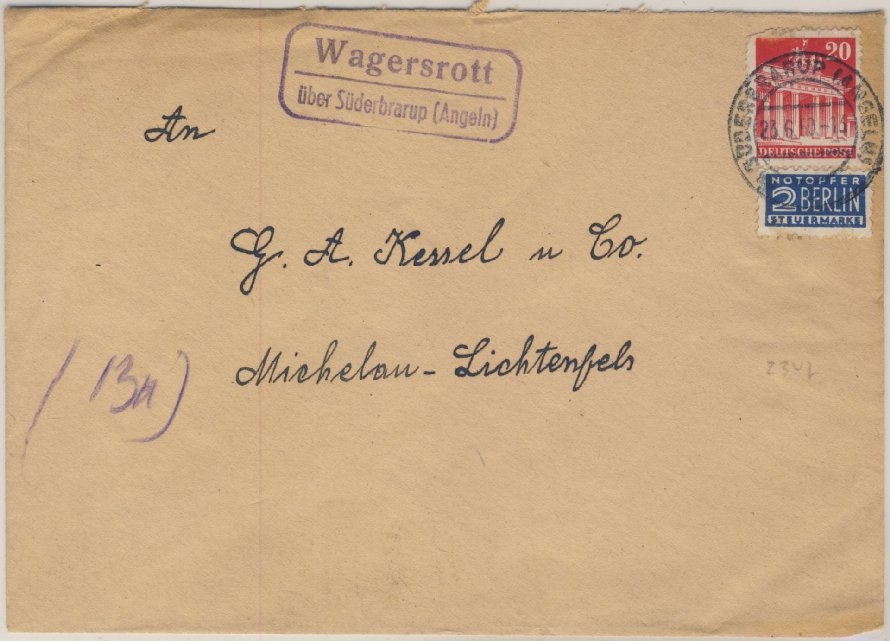 Wagersrott
über Süderbrarup (Angeln)
20
DEUTSCHE POST
SÜDERBRARUP (ANGELN)
23.6.
NOTOPFER
2 BERLIN
STEUERMARKE
An
G. A. Kessel u Co.
Michelau - Lichtenfels
(13a)
2342